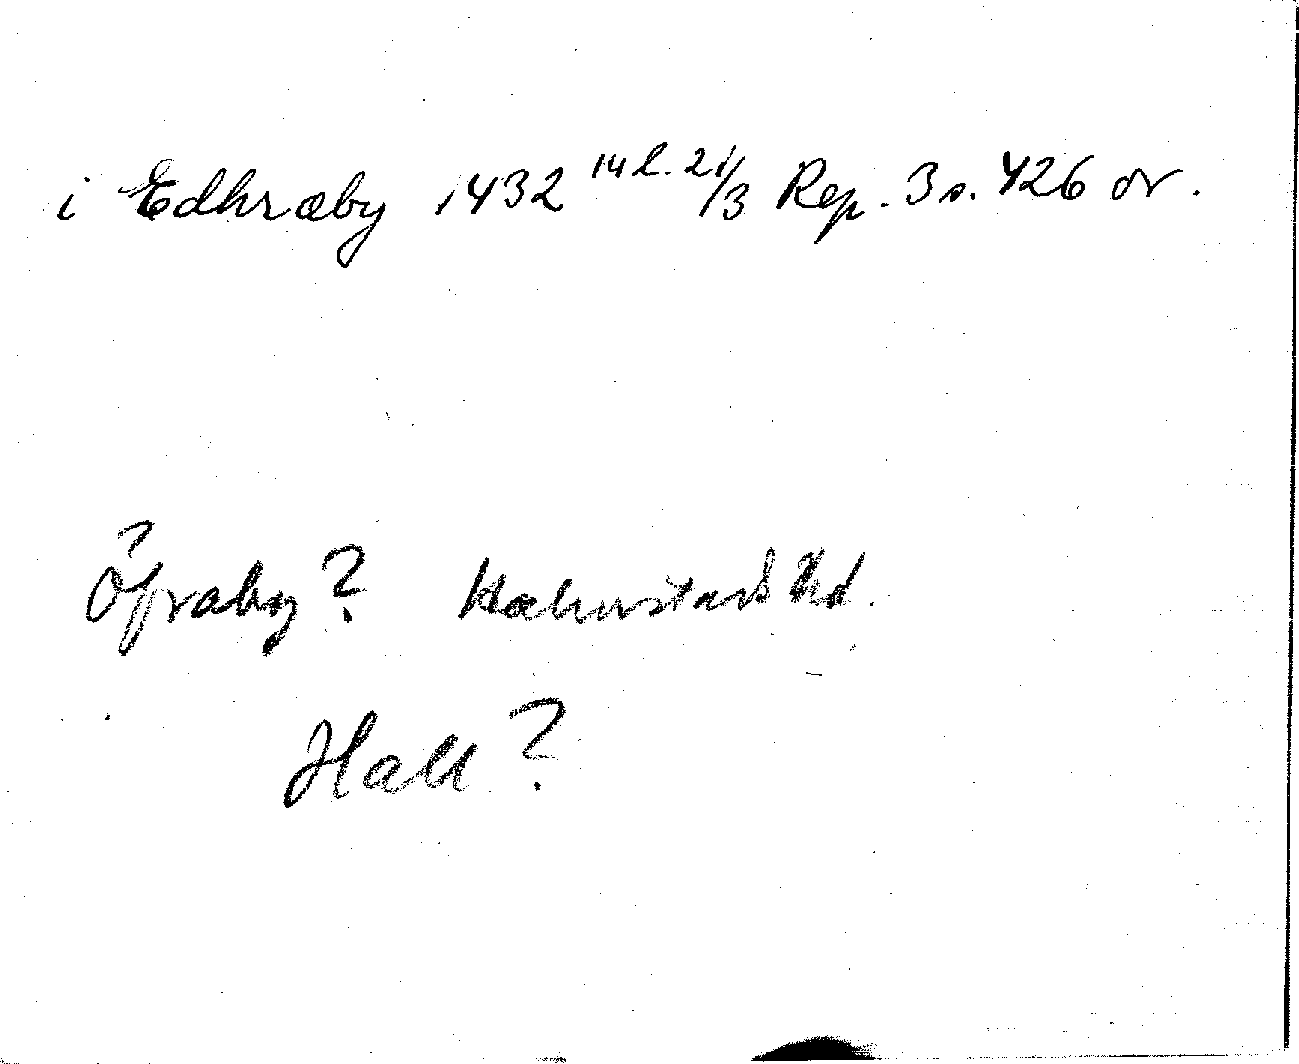 i Edhræby 1432 14 l. 21/3 Rep. 3 s. 426 or.
Öfraby? Halmstads Hd.
Hall?